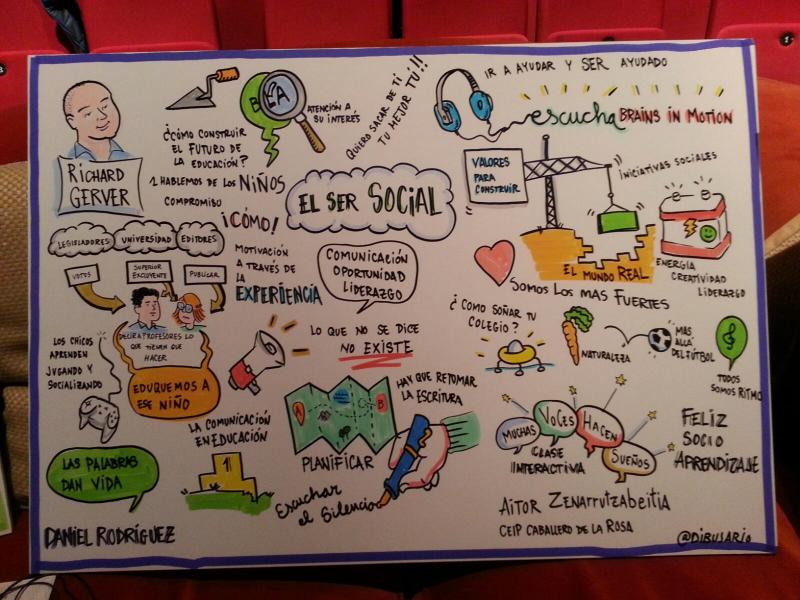 RICHARD
GERVER
¿CÓMO CONSTRUIR
EL FUTURO DE
LA EDUCACIÓN?
1 HABLEMOS DE LOS NIÑOS
COMPROMISO
¡CÓMO!
ATENCIÓN A
SU INTERÉS
QUIERO SACAR DE TI
TU MEJOR TÚ!!!
IR A AYUDAR Y SER AYUDADO
escucha BRAINS IN MOTION
EL SER SOCIAL
VALORES
PARA
CONSTRUIR
INICIATIVAS SOCIALES
EL MUNDO REAL
ENERGÍA
CREATIVIDAD
LIDERAZGO
SOMOS LOS MAS FUERTES
LEGISLADORES
UNIVERSIDAD
EDITORES
VOTOS
SUPERIOR
EXCLUYENTE
PUBLICAR
PROFESORES LO
QUE TIENEN QUE
HACER
EDUQUEMOS A
ESE NIÑO
MOTIVACIÓN
A TRAVÉS DE
LA
EXPERIENCIA
COMUNICACIÓN
OPORTUNIDAD
LIDERAZGO
LO QUE NO SE DICE
NO EXISTE
¿COMO SOÑAR TU
COLEGIO?
NATURALEZA
MAS
ALLÁ
DEL FÚTBOL
TODOS
SOMOS RITMO
LOS CHICOS
APRENDEN
JUGANDO Y
SOCIALIZANDO
LAS PALABRAS
DAN VIDA
LA COMUNICACIÓN
EN EDUCACIÓN
1
A
B
PLANIFICAR
HAY QUE RETOMAR
LA ESCRITURA
Escuchar
el Silencio
MUCHAS
VOCES
HACEN
SUEÑOS
CLASE
INTERACTIVA
FELIZ
SOCIO
APRENDIZAJE
AITOR ZENARRUTZABEITIA
CEIP CABALLERO DE LA ROSA
DANIEL RODRÍGUEZ
@DIBUSARIO